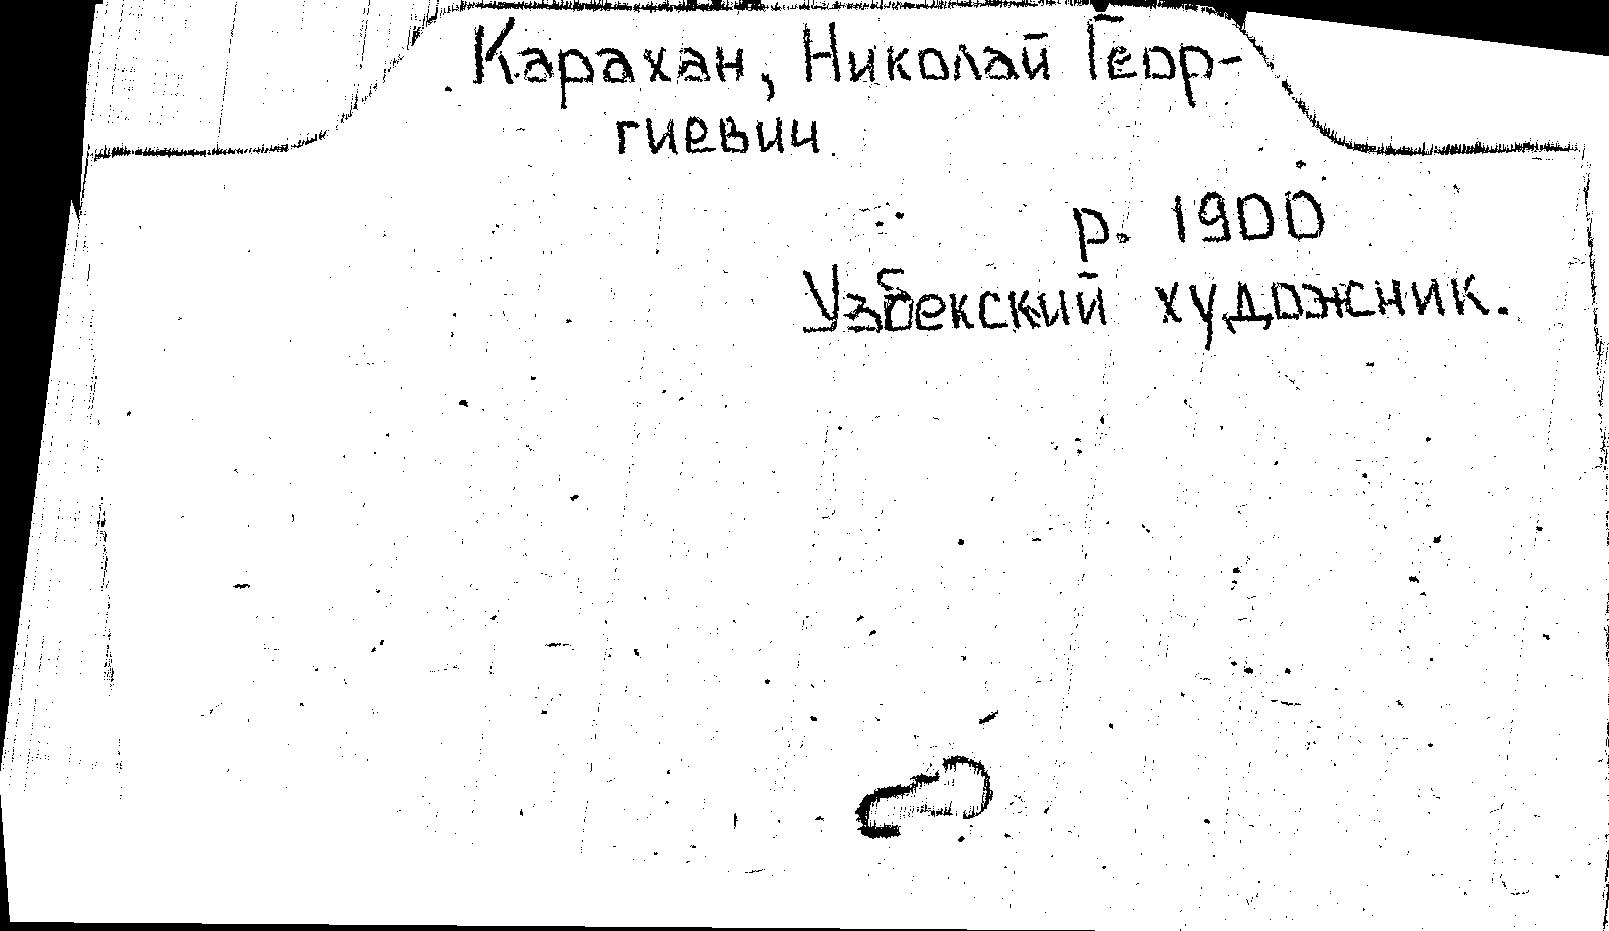 Карахан, Николай Геор-
гиевич
р. 1900
Узбекский художник.